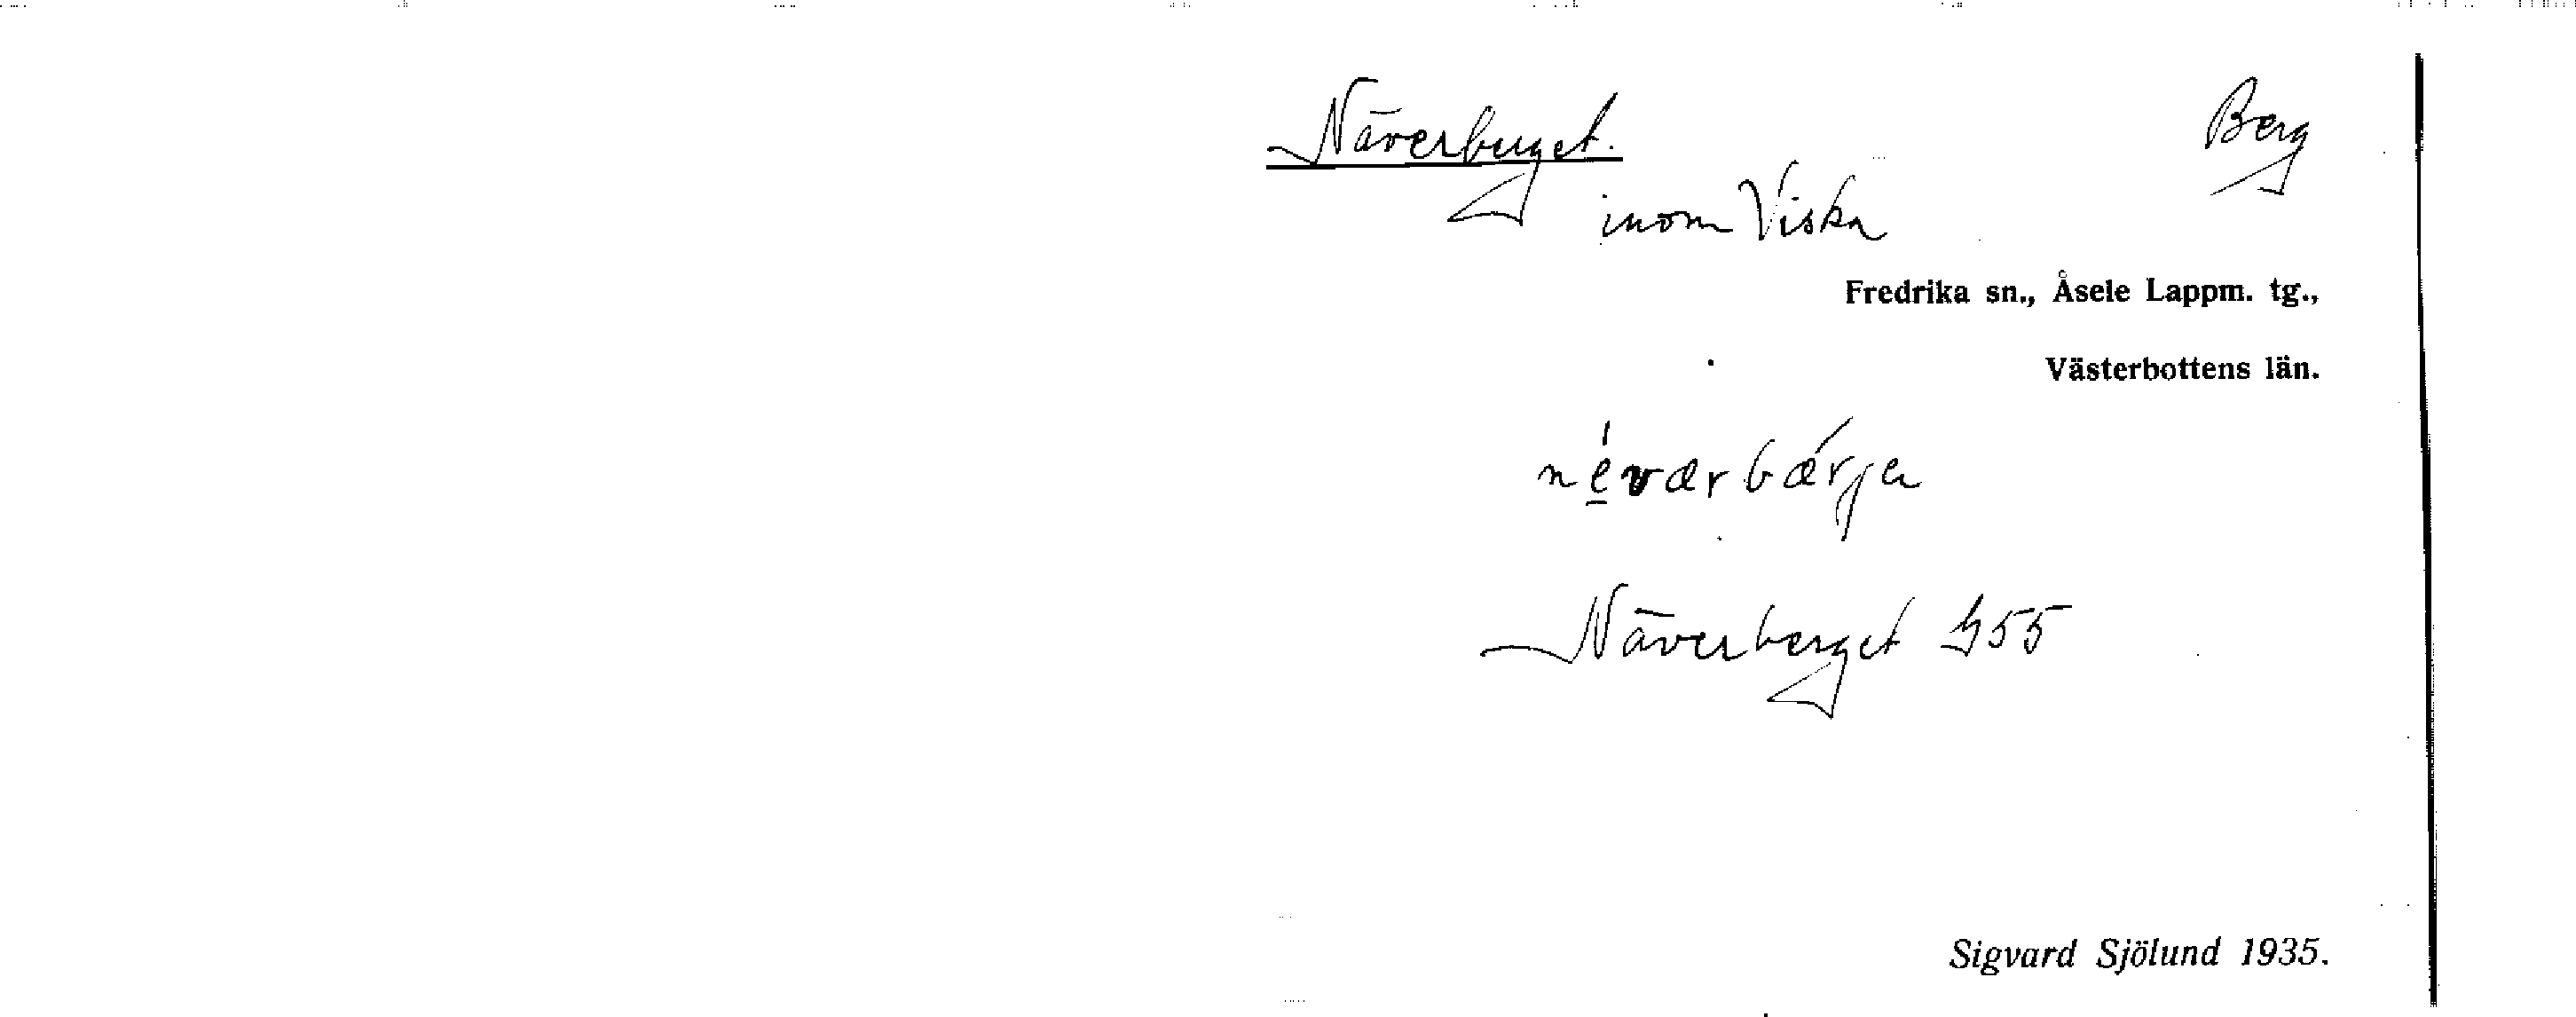 Näverberget. Berg
inom Viska
Fredrika sn., Åsele Lappm. tg.,
Västerbottens län.
néværbærga
Näverberget G55
Sigvard Sjölund 1935.